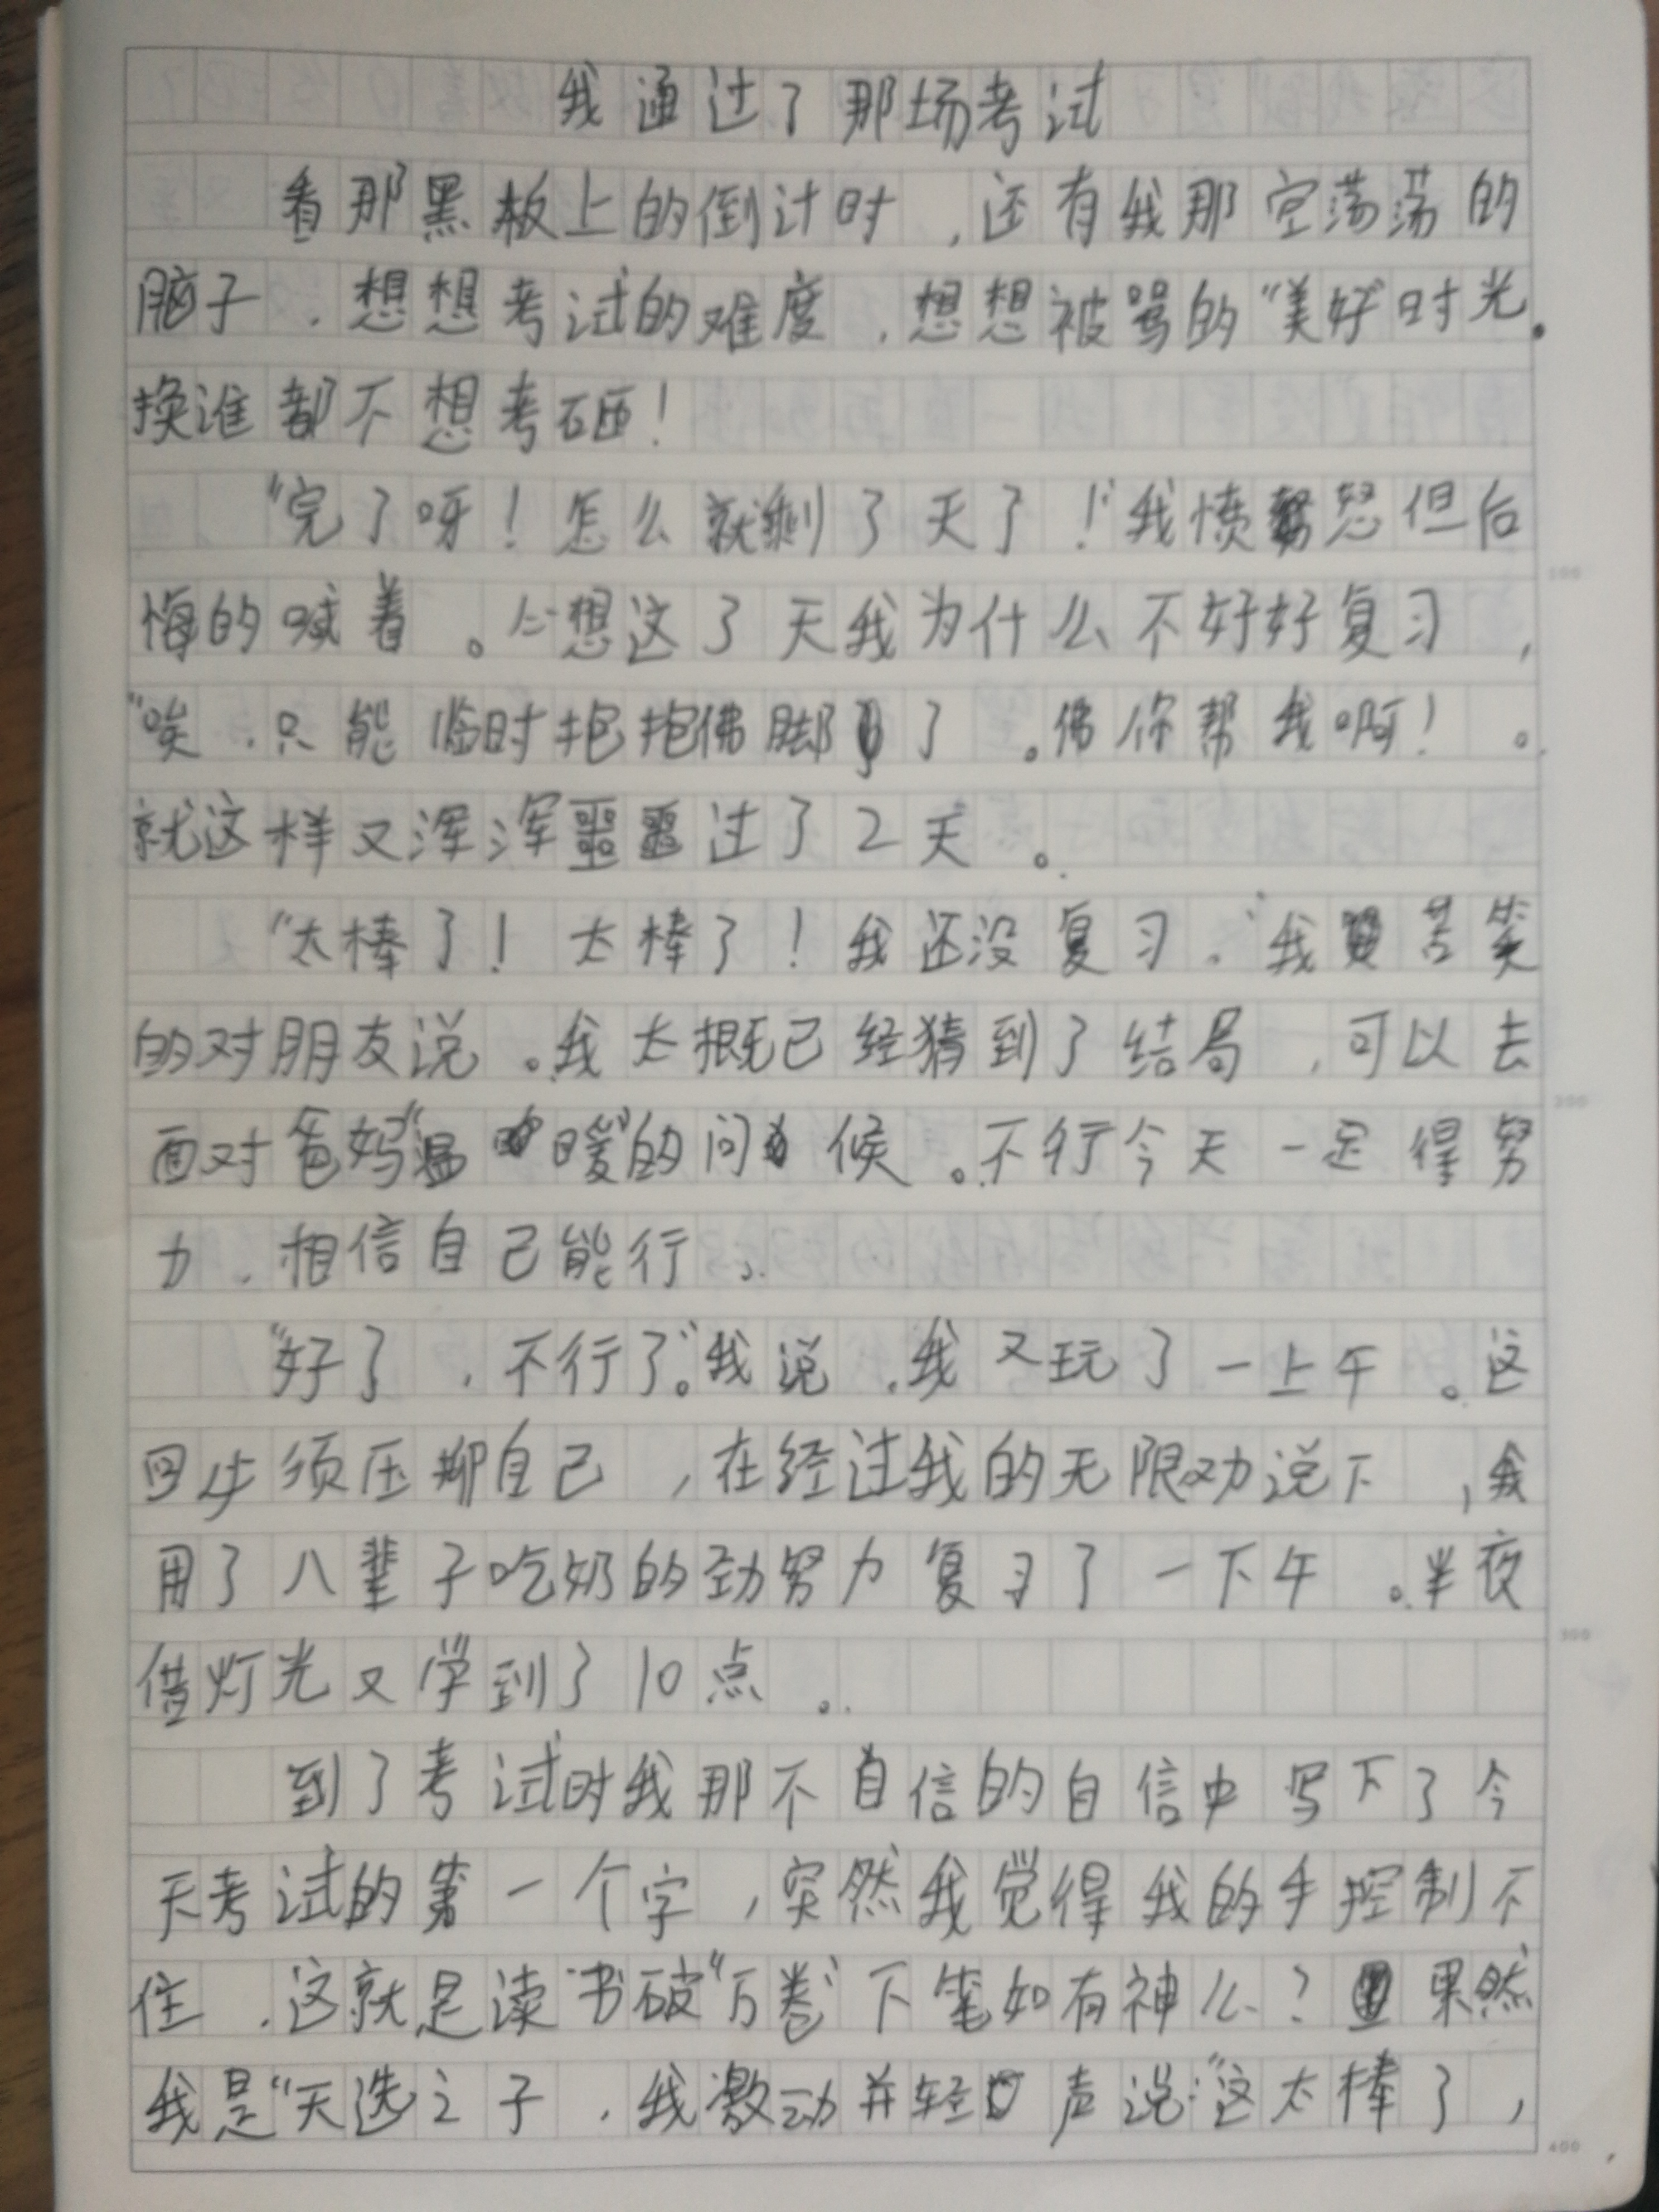 我通过了那场考试
看那黑板上的倒计时,还有我那空荡荡的
脑子,想想考试的难度,想想被骂的“美好”时光。
换谁都不想考砸!
“完了呀!怎么就剩3天了!”我愤怒但后
悔的喊着。心想这3天我为什么不好好复习,
“唉,只能临时抱抱佛脚了。佛你帮我啊!。
就这样又浑浑噩噩过了2天。
“太棒了!太棒了!我还没复习,”我苦笑
的对朋友说。我大概已经猜到了结局,可以去
面对爸妈“温暖”的问候。不行今天一定得努
力,相信自己能行。
“好了,不行了。”我说,我又玩了一上午。这
回必须压押自己,在经过我的无限劝说下,我
用了八辈子吃奶的劲努力复习了一下午。半夜
借灯光又学到了10点。
到了考试时我那不自信的自信中写下了今
天考试的第一个字,突然我觉得我的手控制不
住,这就是读书破“万卷”下笔如有神么?果然
我是“天选之子,我激动并轻声说:“这太棒了,
100
200
300
400